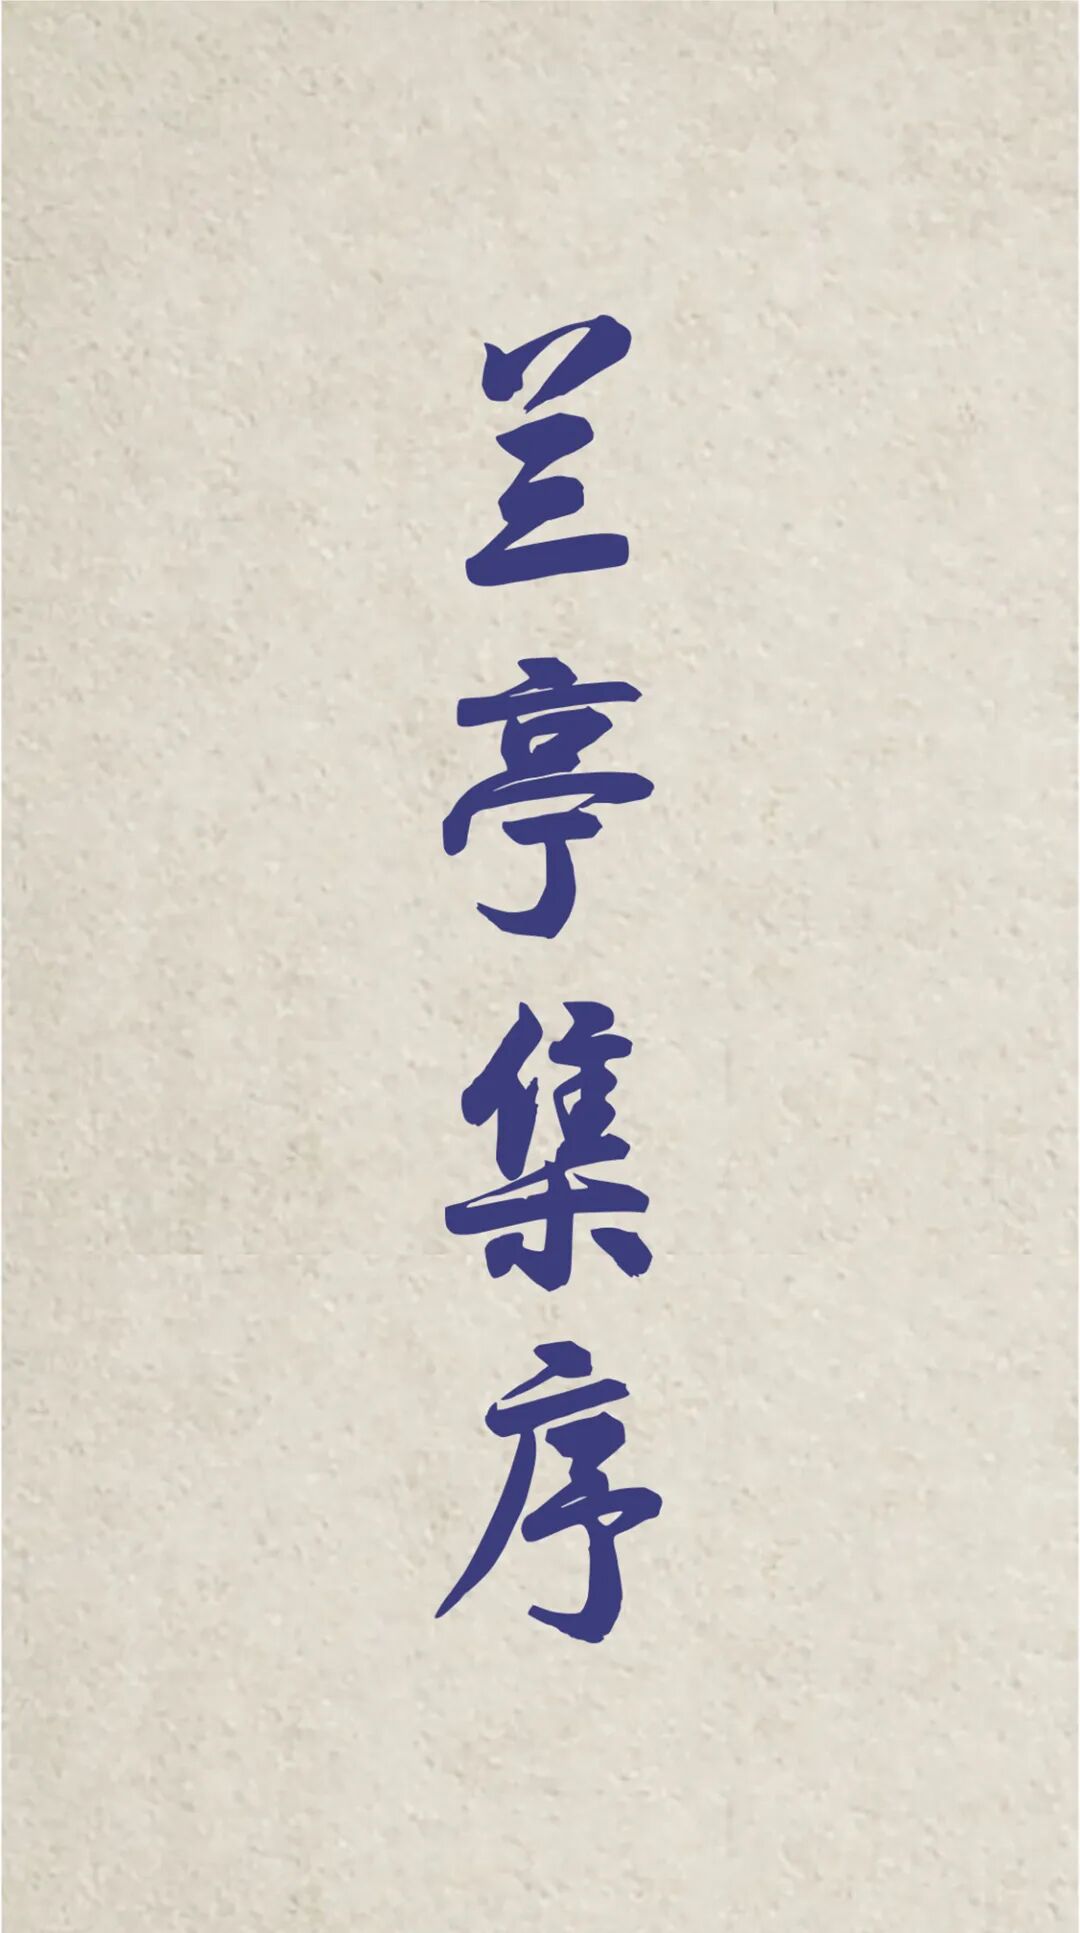 兰亭集序